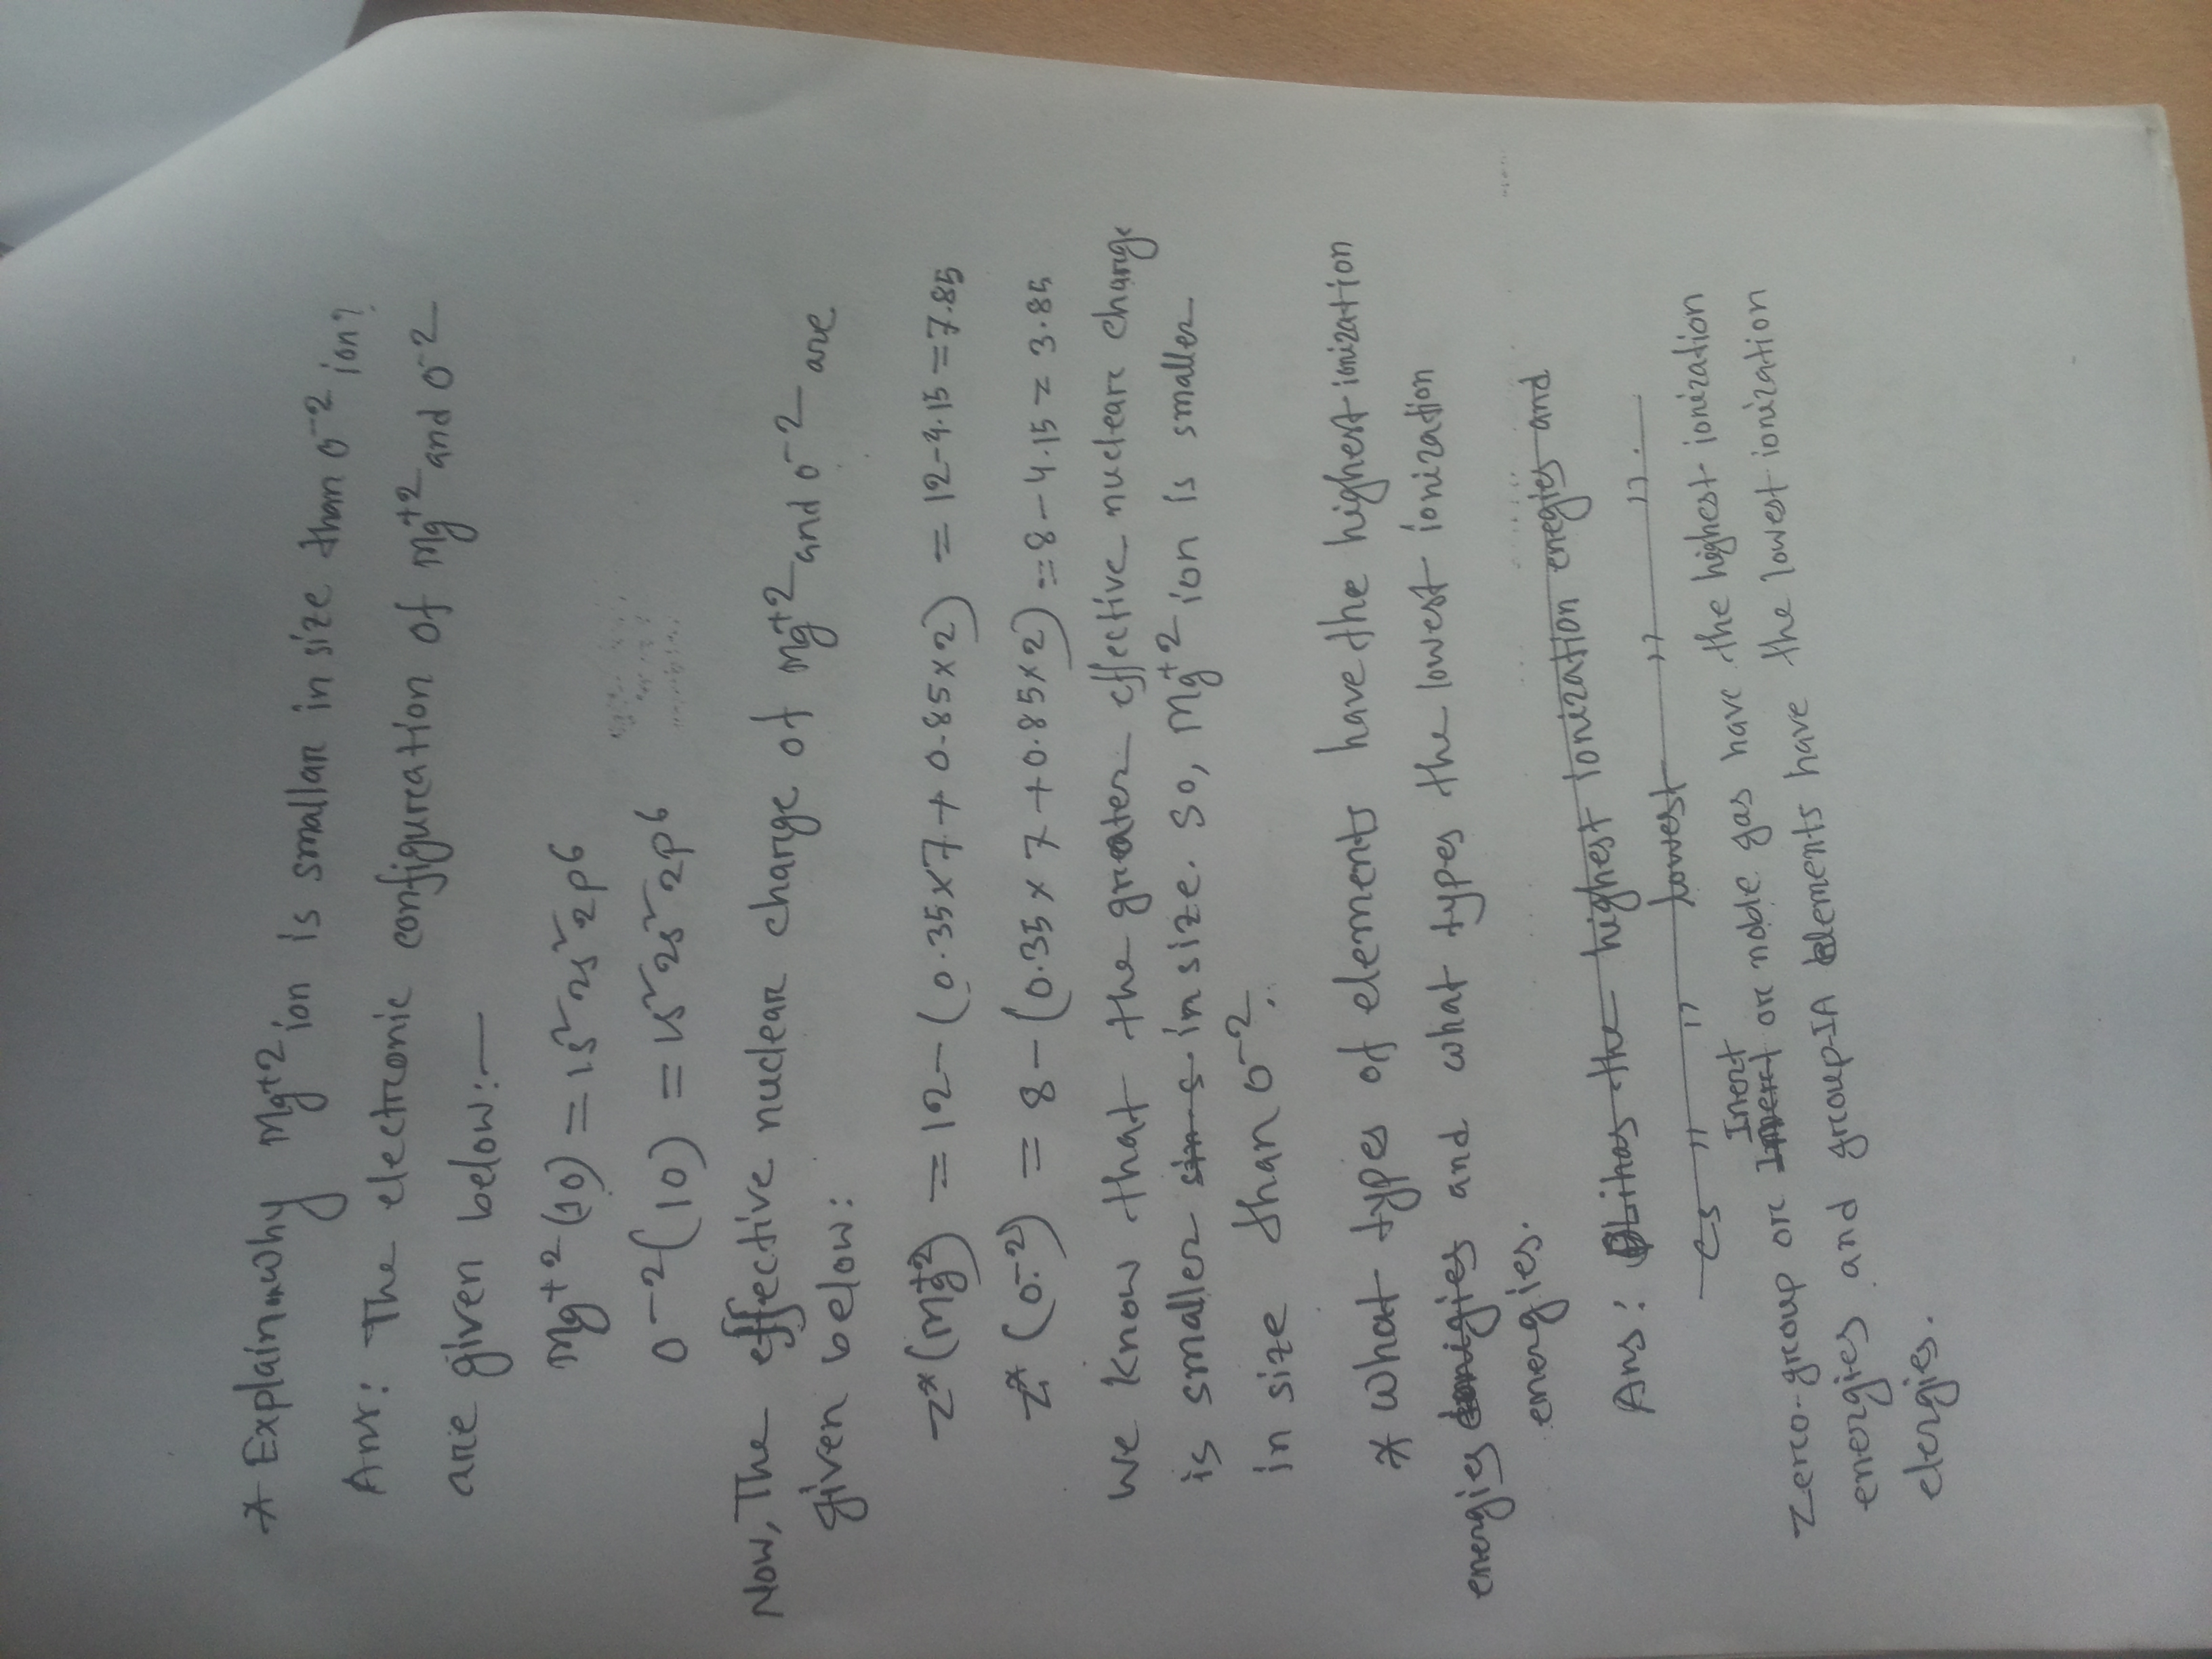 * Explain why Mg+2 ion is smallar in size than O-2 ion?
Ans: The electronic configuration of Mg+2 and O-2
are given below:—
Mg+2 (10) = 1s2 2s2 2p6
O-2 (10) = 1s2 2s2 2p6
Now, The effective nuclear charge of Mg+2 and O-2 are
given below:
Z* (Mg+2) = 12 - (0.35 x 7 + 0.85 x 2) = 12 - 4.15 = 7.85
Z* (O-2) = 8 - (0.35 x 7 + 0.85 x 2) = 8 - 4.15 = 3.85
We know that the greater effective nuclear charge
is smaller in size. So, Mg+2 ion is smaller
in size than O-2.
* What types of elements have the highest ionization
energies and what types the lowest ionization
energies.
Ans: has the highest ionization enegies and
Cs " " lowest " ".
Inert
Zero-group or or noble gas have the highest ionization
energies and group-IA elements have the lowest ionization
elergies.